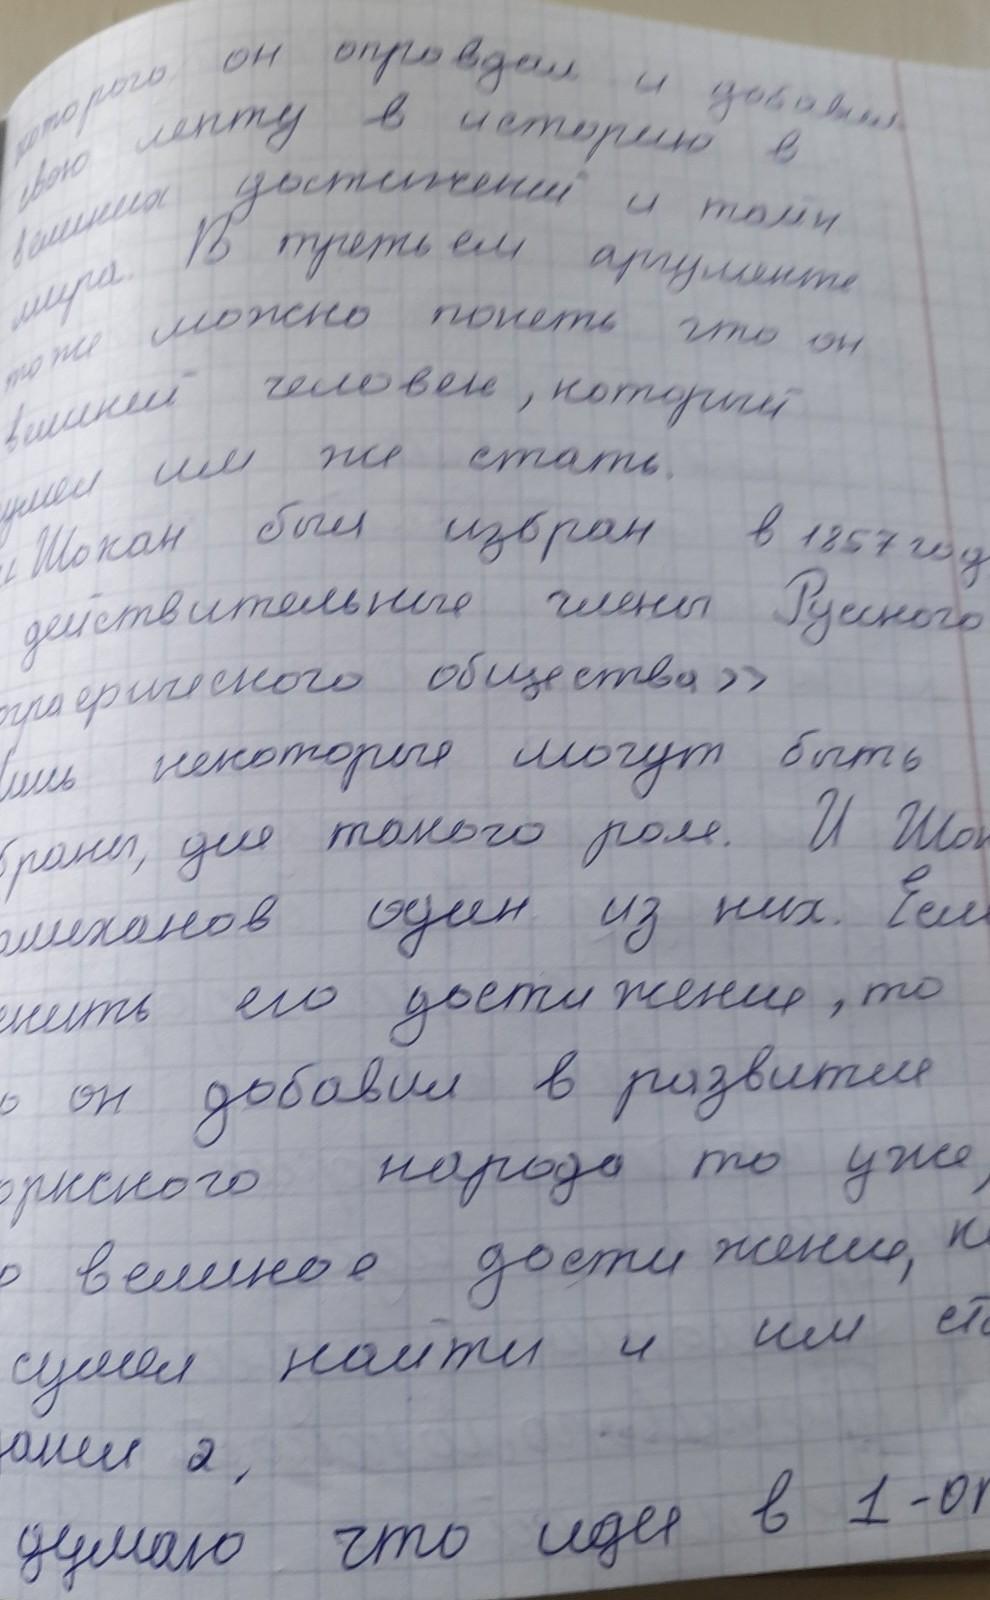 которого он оправдал и добавил
свою лепту в историю в
великих достижений и тайн
мира. В третьем аргументе
тоже можно понеть что он
великий человек, который
сумел им же стать.
Шокан был избран в 1857 год
действительные члены Русского
ографического общества»
лишь некоторые могут быть
браны, для такого роле. И Шок
алиханов один из них. Если
енить его достижение, то
о он добавил в развитии
юркского народа то уже,
о великое достижение, ко
сумел найти и им ста
дание 2,
думаю что идея в 1-ом